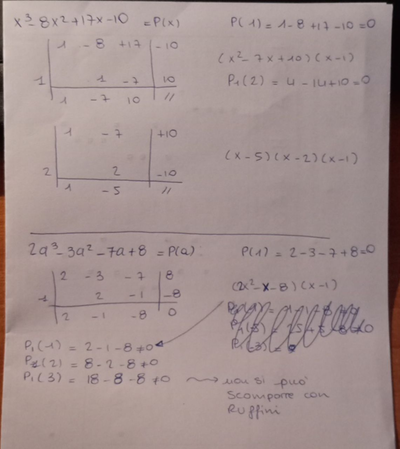 x³-8x²+17x-10 = P(x)
P(1) = 1-8+17-10=0
1 -8 +17 -10
1 1 -7 10
1 -7 10 //
(x²-7x+10)(x-1)
P₁(2) = 4-14+10=0
1 -7 +10
2 2 -10
1 -5 //
(x-5)(x-2)(x-1)
2a³-3a²-7a+8 = P(a)
P(1) = 2-3-7+8=0
2 -3 -7 8
1 2 -1 -8
2 -1 -8 0
(2x²-x-8)(x-1)
P₁(-1) = 2-1-8≠0
P₁(2) = 8-2-8≠0
P₁(3) = 18-8-8≠0
non si può
scomporre con
Ruffini